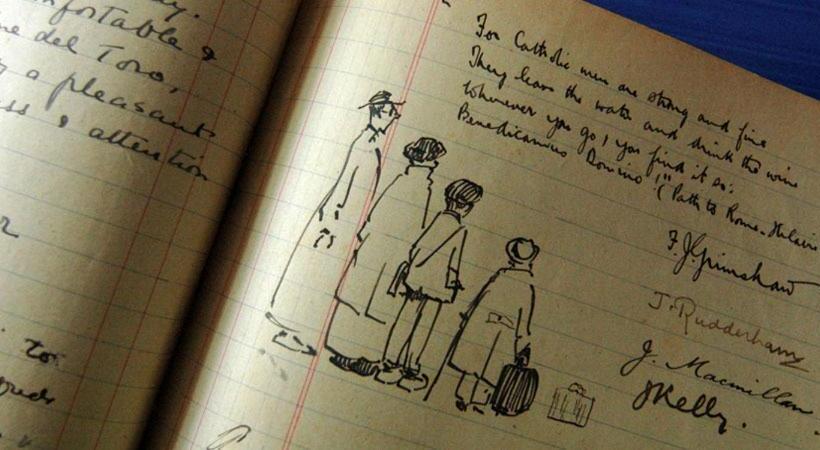 ay.
nfortable &
ne del Toro,
a pleasant
ss & attention
to
For Catholic men are strong and fine
They leave the water and drink the wine
Whenever you go, you find it so:
Benedicamus Domino" (Path to Rome. Hilaire
F. J. Grimshaw
J. Rudderham
J. Macmillan
J Kelly.